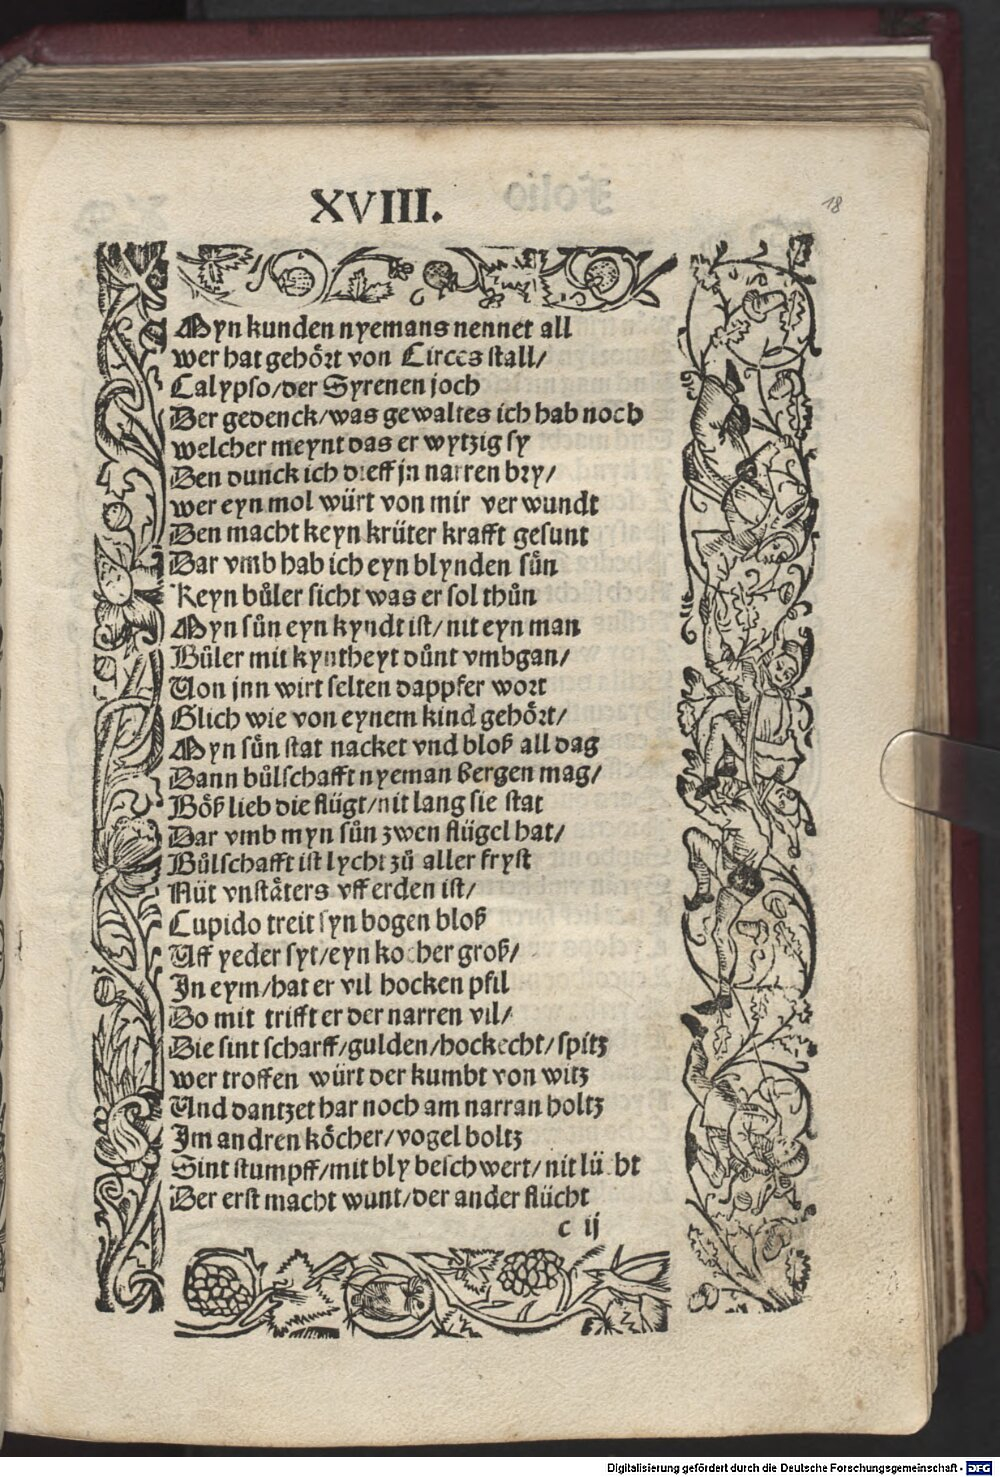 XVIII.
18
Myn kunden nyemans nennet all
wer hat gehört von Circes stall/
Calypso/der Syrenen joch
Der gedenck/was gewaltes ich hab noch
welcher meynt das er wytzig sy
Den dunck ich dieff jn narren bry/
wer eyn mol würt von mir verwundt
Den macht keyn krüter krafft gesunt
Dar vmb hab ich eyn blynden sůn
Keyn bůler sicht was er sol thůn
Myn sůn eyn kyndt ist/nit eyn man
Bůler mit kyntheyt důnt vmbgan/
Von jnn wirt selten dappfer wort
Glich wie von eynem kind gehört/
Myn sůn stat nacket vnd bloß all dag
Dann bůlschafft nyeman bergen mag/
Böß lieb die flügt/nit lang sie stat
Dar vmb myn sůn zwen flügel hat/
Bůlschafft ist lycht zů aller fryst
Nüt vnstäters vff erden ist/
Cupido treit syn bogen bloß
Uff yeder syt/eyn kocher groß/
In eym/hat er vil hocken pfil
Do mit trifft er der narren vil/
Die sint scharff/gulden/hockecht/spitz
wer troffen würt der kumbt von witz
Und dantzet har noch am narran holtz
Im andren köcher/vogel boltz
Sint stumpff/mit bly beschwert/nit lücht
Der erst macht wunt/der ander flücht
c ij
Digitalisierung gefördert durch die Deutsche Forschungsgemeinschaft - DFG